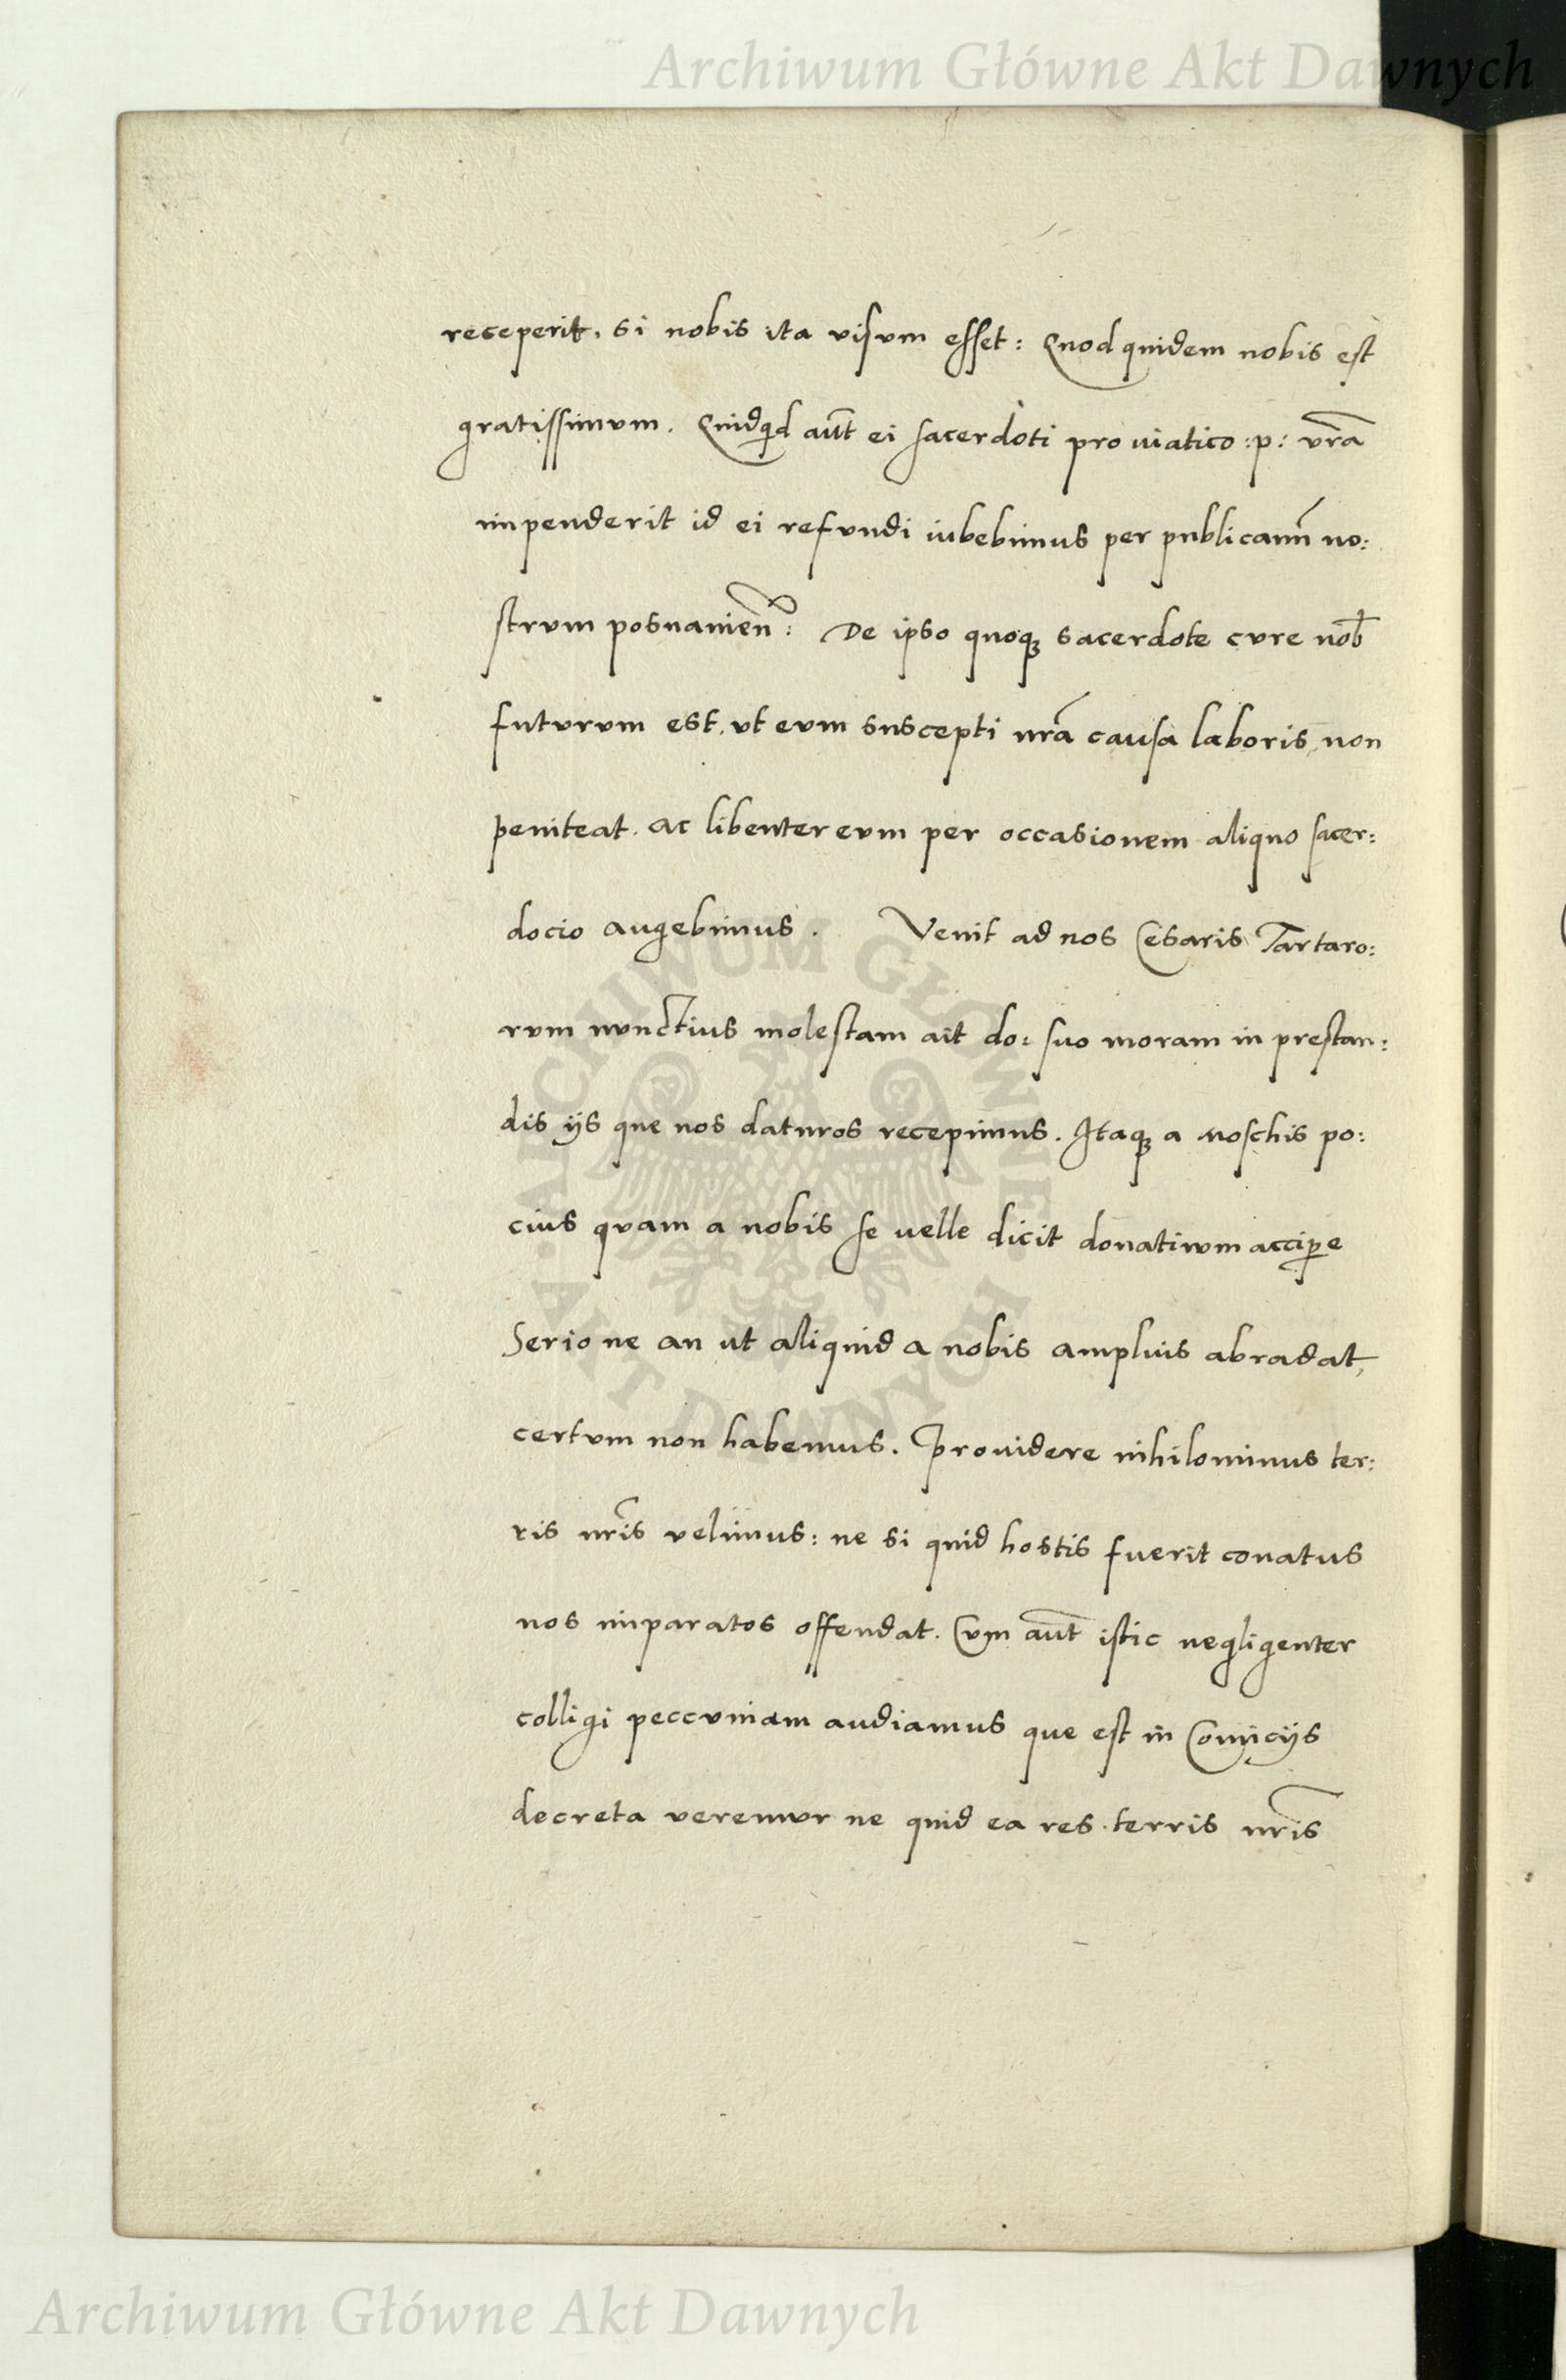 Archiwum Główne Akt Dawnych
receperit, si nobis ita visum esset: Quod quidem nobis est
gratissimum. Quidqd aut̃ ei sacerdoti pro viatico :p: vr̃a
impenderit id ei refundi iubebimus per publicanũ no:
strum posnanień: De ipso quoqꝫ sacerdote cure nob̃
futurum est, ut eum suscepti nr̃a causa laboris non
peniteat. ac libenter eum per occasionem aliquo sacer:
docio augebimus. Venit ad nos Cesaris Tartaro:
rum nunctius molestam ait do: suo moram in prestan:
dis ijs que nos daturos recepimus. Itaqꝫ a moschis po:
cius quam a nobis se velle dicit donativum accipe
Serio ne an ut aliquid a nobis amplius abradat,
certum non habemus. Providere nihilominus ter:
ris nr̃is velimus: ne si quid hostis fuerit conatus
nos imparatos offendat. Cum aut̃ istic negligenter
colligi peccuniam audiamus que est in Comicijs
decreta veremur ne quid ea res terris nr̃is
ARCHIWUM GŁÓWNE AKT DAWNYCH
Archiwum Główne Akt Dawnych